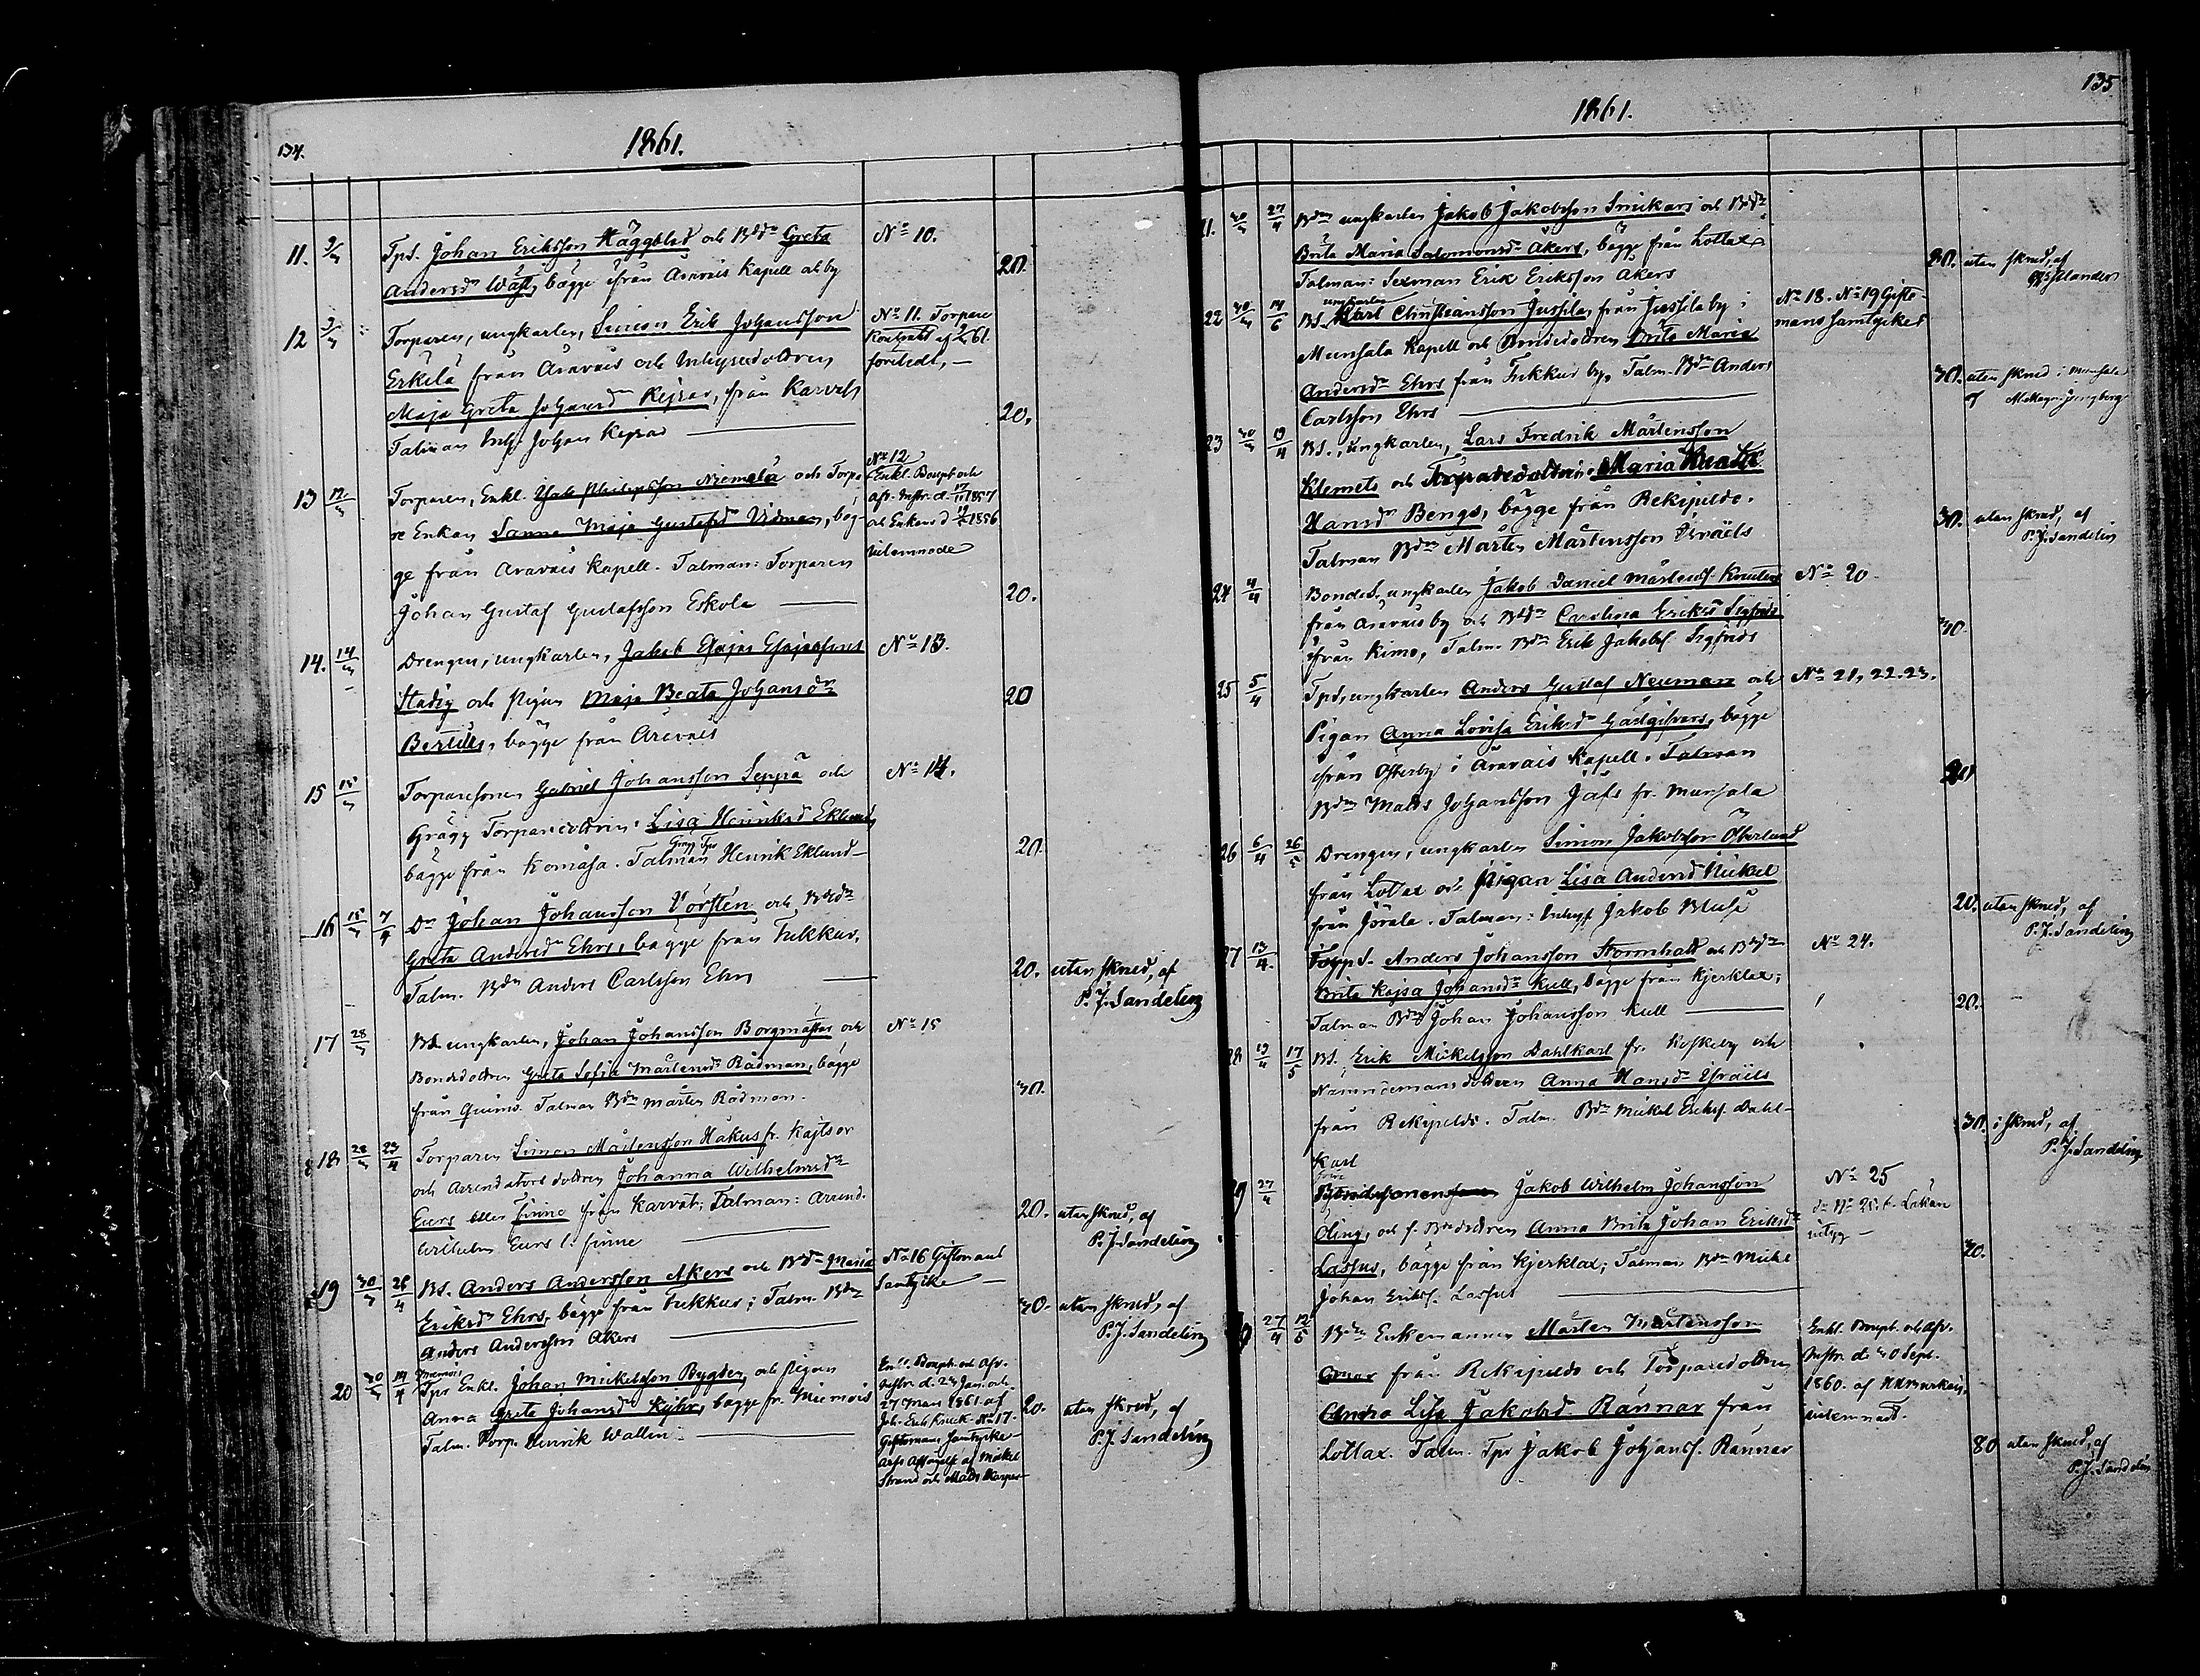 134.
1861.
11. 9/3 Tps. Johan Eriksson Häggblad och Bdr Greta
Andersdr Wäst, bägge från Oravais Kapell ab by
No 10.
20.
12 9/3 Torparen, ungkarlen, Simon Erik Johansson
Erkilä från Oravais och Inhysesdottren
Maja Greta Johansdr Kejsar, från Karvat
Talman Inh. Johan Kejsar
No 11. Torpare
Kontrakt af 61.
företedt, —
20.
13 12/3 Torparen, Enkl. Philipsson Niemelä och Torpa-
re Enkan Sanna Maja Gustafsdr Widman, bäg-
ge från Oravais Kapell. Talman: Torparen
Johan Gustaf Gustafsson Eskola
No 12
Enkl. Boupt och
afv. Instr. d. 1857
och Enkans d 1856
inlemnade
20.
14. 14/3 Drengen, ungkarlen, Jakob Esajas Esajasson
Stadig och Pigan Maja Beata Johansdr
Bertils, bägge från Oravais
No 13.
20
15 15/3 Torparesonen Gabriel Johansson Seppä och
Torparedottren Lisa Henriksd Eklund,
bägge från Komåsa. Talman Henrik Eklund
No 14.
20.
16 15/3 7/4 Dr Johan Johansson Vörsten och Bdr
Greta Andersdr Ehrs, bägge från Tukkur,
Talm. Bdn Anders Carlsson Ehrs
20. utan skrud, af
P. J. Sandelin
17 28/3 BS. ungkarlen, Johan Johansson Borgmästar och
Bondedottren Greta Sofia Mårtensdr Rådman, bägge
från Qvimo. Talman Bdn Mårten Rådman.
No 15
30.
18 28/3 23/4 Torparen Simon Mårtensson Håkus fr. Kajtsor
och Arrendators dottren Johanna Wilhelmsdr
Eurs eller Finne från Karvat; Talman: Arrend.
Wilhelm Eurs l. Finne
20. utan skrud, af
P. J. Sandelin
19 30/3 26/4 BS. Anders Andersson Akers och Bdr Maria
Eriksdr Ehrs, bägge från Tukkur; Talm. Bdn
Anders Andersson Akers
No 16 Giftomans
Samtycke
30. utan skrud, af
P. J. Sandelin
20 30/3 14/4 Tps Enkl. Johan Mickelsson Bygden, och Pigan
Anna Greta Johansdr Kyhr, bägge fr. Miemois
Talm. Torp. Henrik Wallin
Enkl. Boupt. och Afv.
Instr. d. 23 Jan. och
27 Mars 1861. af
Joh. Erik Knuck. No 17.
Giftomans Samtycke
af Mickel
Strand och Mats Kasper
20. utan skrud, af
P. J. Sandelin
135
1861.
21. 30/3 27/4 Bdn ungkarlen Jakob Jakobsson Snickars och Bdr
Brita Maria Salomonsdr Åkers, bägge från Lotlax
Talman: Sexman Erik Eriksson Åkers
20. utan skrud, af
22 30/3 14/6 BS. ungkarlen Karl Christiansson Jussila, från Jussila by i
Munsala Kapell och Bondedottren Brita Maria
Andersdr Ehrs från Tukkur by, Talm. Bdn Anders
Carlsson Ehrs
No 18. No 19 Gifto-
mans samtycket
30. utan skrud i Munsala
af
23 30/3 19/4 BS., ungkarlen, Lars Fredrik Mårtensson
Klemets och Torparedottren Maria
Hansdr Bengs, bägge från Rekipeldo.
Talman Bdn Mårten Mårtensson Israels
30. utan skrud, af
P. J. Sandelin
24 4/4 Bondes. ungkarlen Jakob Daniel Mårtens. Knuters
från Oravais by och Bdr Carolina Eriksdr Sigfrids
från Kimo, Talm. Bdn Erik Jakobs. Sigfrids
No 20
30
25 5/4 Tps, ungkarlen Anders Gustaf Neuman och
Pigan Anna Lovisa Eriksdr Gästgifvars, bägge
från Österby i Oravais Kapell. Talman
Bdn Matts Johansson Jåfs fr. Munsala
No 21, 22. 23.
20
26 6/4 26/5 Drengen, ungkarlen Simon Jakobsson Österlund
från Lotlax och Pigan Lisa Andersd Nickel
från Jörala. Talman: Inhys Jakob
20. utan skrud, af
P. J. Sandelin
27 13/4 Torp S. Anders Johansson Stormhatt och Bdr
Brita Kajsa Johansdr Kull, bägge från Kjerklax;
Talman Bdn Johan Johansson Kull
No 24.
20.
28 13/4 17/5 BS. Erik Mickelsson Dahlkarl fr. Koskeby och
Nämndemansdottren Anna Hansdr Israels
från Rekipeldo. Talm. Bdn Mickel Dahl-
karl
30. i skrud, af
P. J. Sandelin
29 27/4 Bondesonen Jakob Wilhelm Johansson
Oling, och f. Bdottren Anna Brita Johan Eriksdr
Lassus, bägge från Kjerklax; Talman Bdn Mickel
Johan Eriks. Lassus
No 25
30.
30 27/4 12/5 Bdn Enkemannen Mårten Mårtensson
från Rekipeldo och Torparedottren
Anna Lisa Jakobsd. Rännar från
Lotlax. Talm. Tps Jakob Johans. Rännar
Enkl. Boupt. och Afv.
Instr. d. 30 Sept.
1860. af
inlemnadt.
80 utan skrud, af
P. J. Sandelin